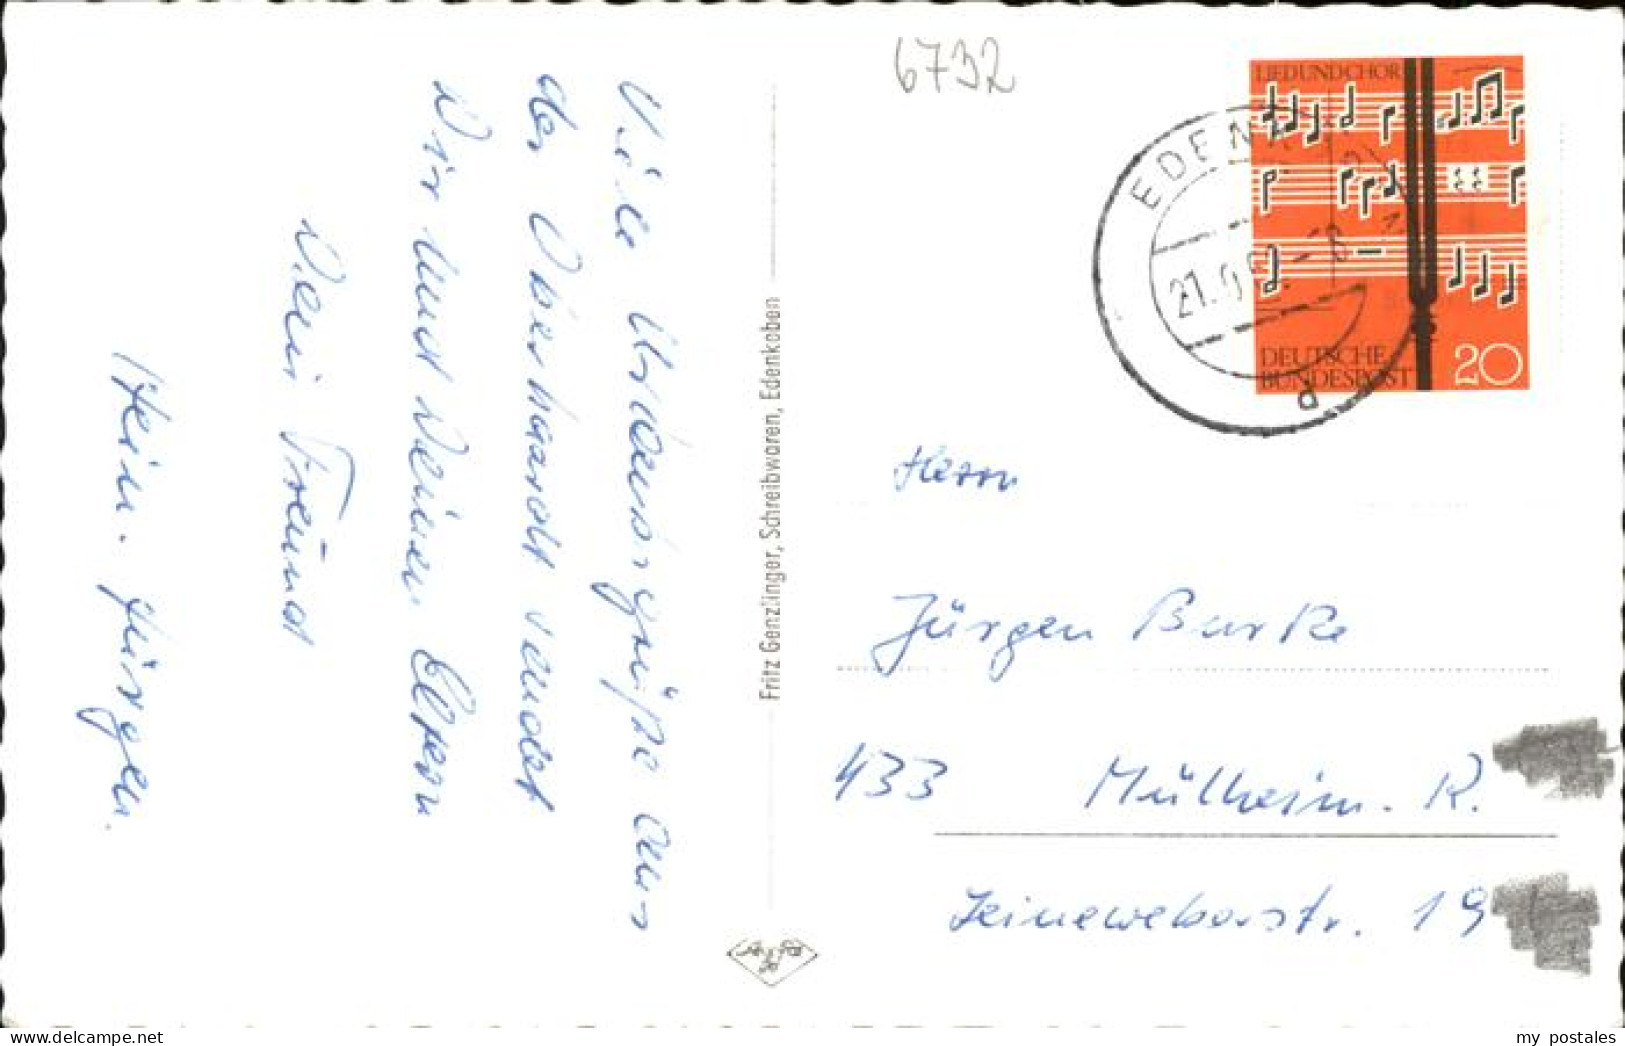 Viele Urlaubsgrüße aus
der Oberhaardt sendet
Dir und Deinen Eltern
Dein Freund
Hein. Jürgen.
Fritz Genzlinger, Schreibwaren, Edenkoben
6732
LIED UND CHOR
DEUTSCHE
BUNDESPOST
20
EDENK
21.
d
Herrn
Jürgen Burke
433 Mülheim. R.
Leineweberstr. 19
my postales